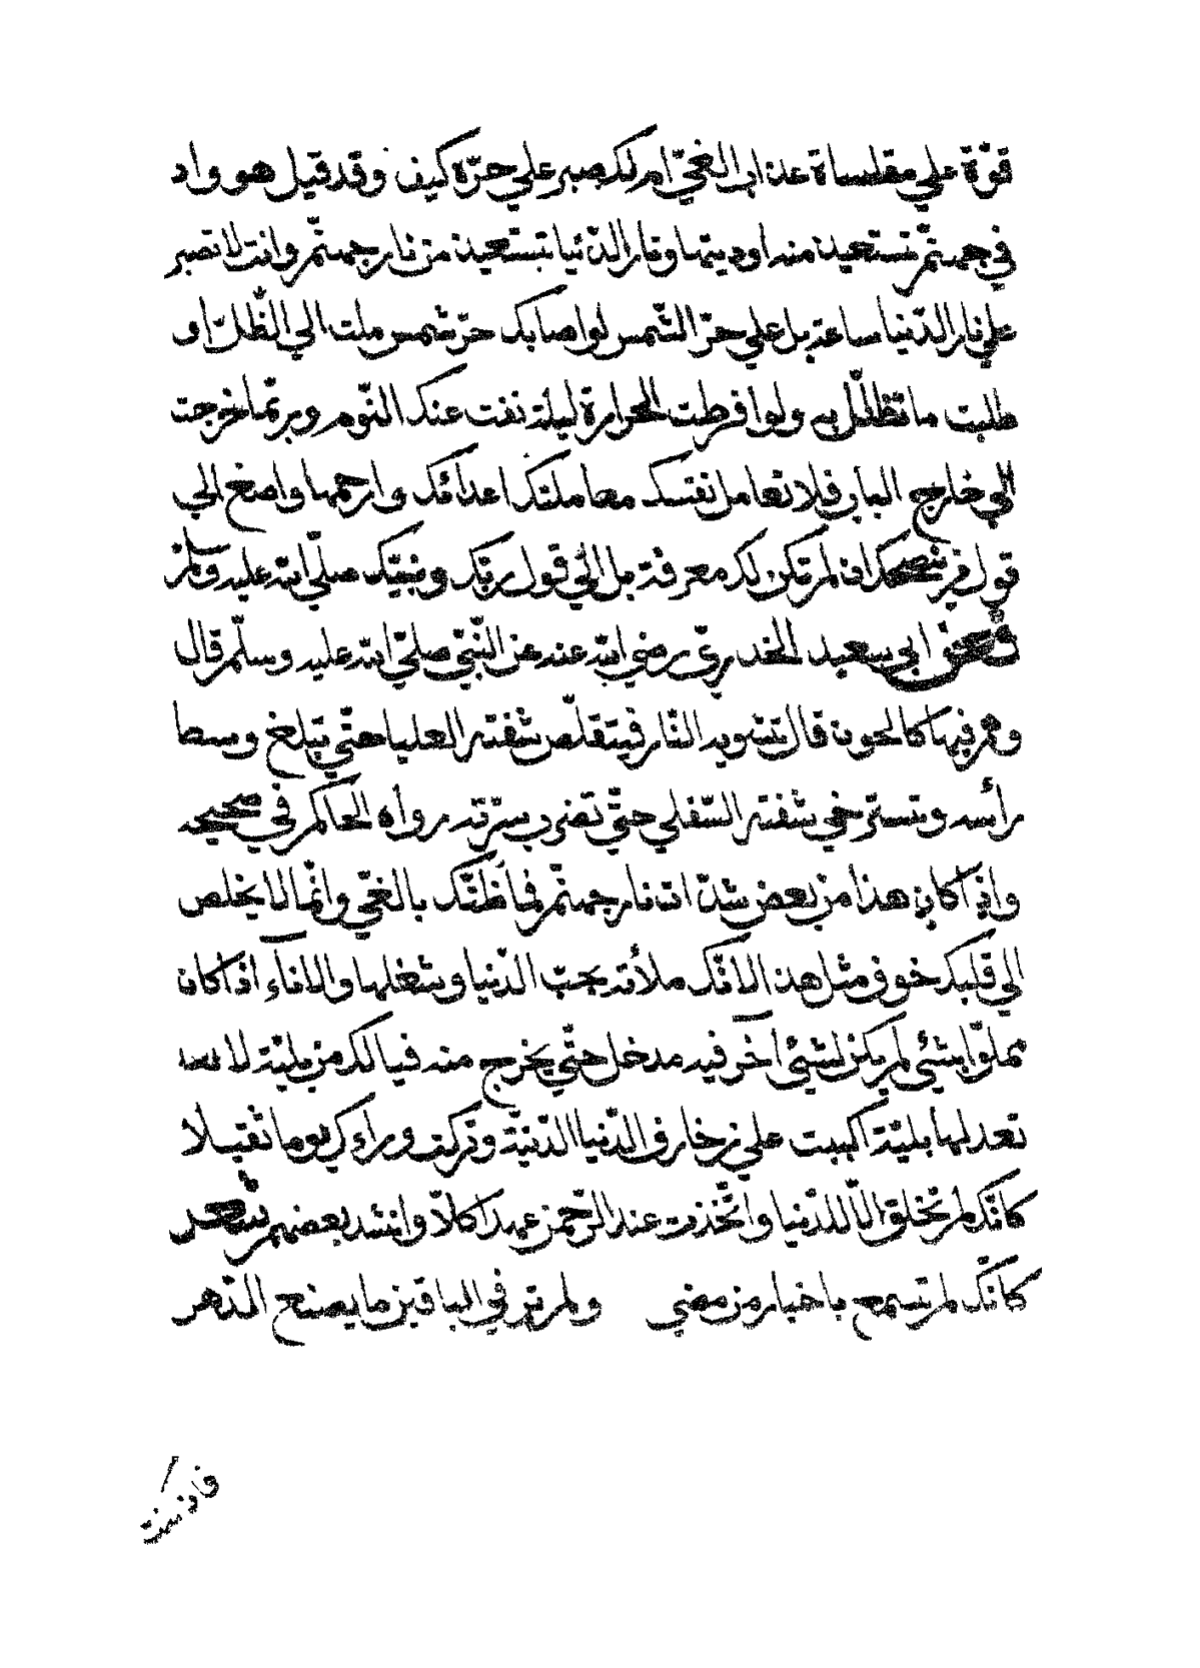 قوّة علي مقاساة عذاب الغيّ ام لك صبر علي حرّه كيف وقد قيل هو واد
في جهنّم تستعيذ منه اوديتها ونار الدّنيا تستعيذ من نار جهنّم وانت لا تصبر
علي نار الدّنيا ساعة بل علي حرّ الشّمس لو اصابك حرّ شمس ملت الي الظّلّ او
طلبت ما تظلّل به ولو افرطت الحرارة ليلة نفت عنك النّوم وربّما خرجت
الي خارج الباب فلا تعامل نفسك معاملتك اعدائك وارحمها واصخ الي
قول من ينصحك ان لم تكن لك معرفة بل الي قول ربّك ونبيّك صلّي الله عليه وسلّم
فعن ابي سعيد الخدريّ رضي الله عنه عن النّبيّ صلّي الله عليه وسلّم قال
وهم فيها كالحون قال تشويه النّار فيتقلّص شفته العليا حتّي تبلغ وسط
رأسه وتسترخي شفته السّفلي حتّي تضرب سرّته رواه الحاكم في صحيحه
واذا كان هذا من بعض شدّات نار جهنّم فما ظنّك بالغيّ وانّما لا يخلص
الي قلبك خوف مثل هذا لانّك ملأته بحبّ الدّنيا وشغلها والاناء اذا كان
مملوّا بشئ لم يكن لشئ آخر فيه مدخل حتّي يخرج منه فيا لك من بليّة لا
تعدلها بليّة اكببت علي زخارف الدّنيا الدّنيّة وتركت وراءك يوما ثقيلا
كانّك لم تخلق الّا للدّنيا واتّخذت عند الرّحمن عهدا كلّا وانشد بعضهم شعر
كانّك لم تسمع باخبار من مضي ولم تر في الباقين ما يصنع الدّهر